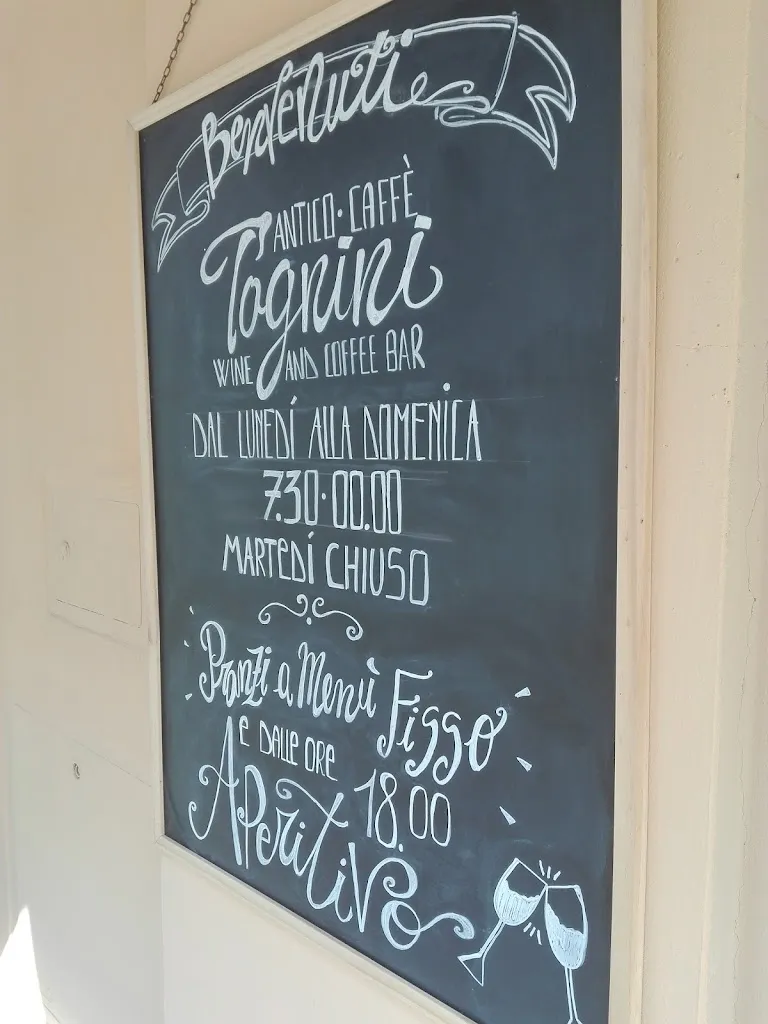 Benvenuti
ANTICO · CAFFÈ
Tognini
WINE AND COFFEE BAR
DAL LUNEDÍ ALLA DOMENICA
7.30 · 00.00
MARTEDÍ CHIUSO
Pranzi a Menù Fisso
E DALLE ORE 18.00
APeritivo